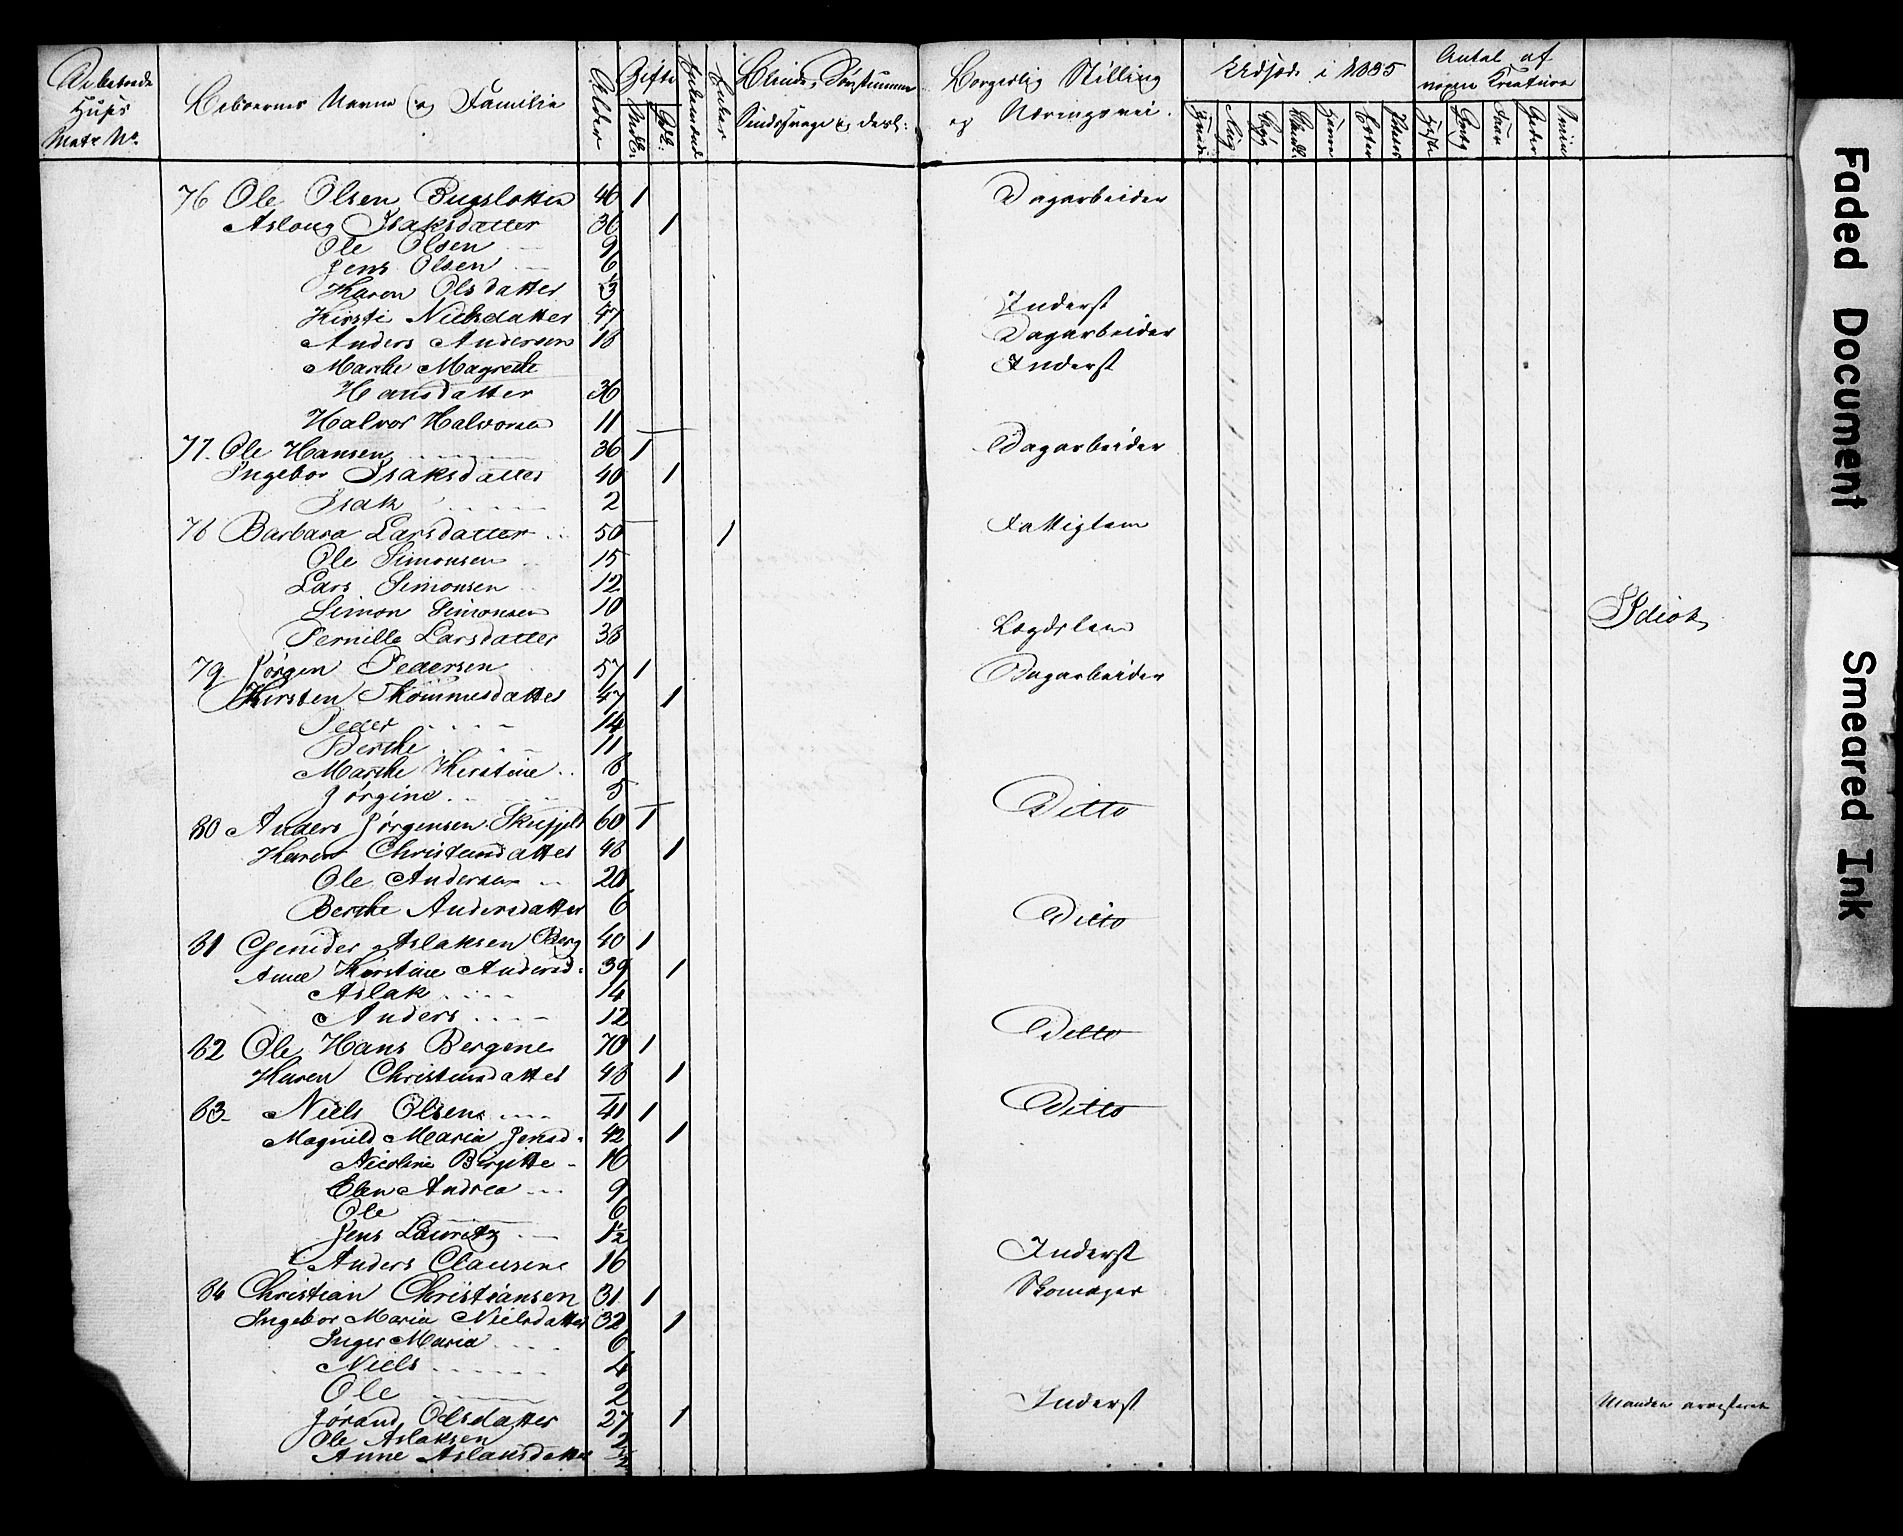 Bebooede Huses Matr No.
Beboernes Navne og Familie
Alder
Gifte
Mdl:
Qdl:
Enker
Blinde, Døvstumme
Sindssvage & desl:
Borgerlig Stilling
og Næringsvei.
Udsæd i 1835
Hvede
Rug
Byg
Blandk.
Havre
Erter
Poteter
Antal af
nogen Kreature
Heste
Qvæg
Faar
Geder
Sviin
76 Ole Olsen 46 1 Dagarbeider
Asloug Isaksdatter 36 1
Ole Olsen 9
Jens Olsen 6
Karen Olsdatter 3 Inderst
Kirsti Nielsdatter 47 Dagarbeider
Anders Andersen 18 Inderst
Marthe Magrethe
Hansdatter 36
Halvor Halvorsen 11
77. Ole Hansen 36 1 Dagarbeider
Ingebor Isaksdatter 40 1
Isak 2
78 Barbara Larsdatter 50 1 Fattiglem
Ole Simonsen 15
Lars Simonsen 12
Simon Simonsen 10 Idiot
Pernille Larsdatter 38 Lægdslem
79 Jørgen Pedersen 57 1 Dagarbeider
Kirsten Thommesdatter 47 1
Peder 14
Berthe 11
Marthe Kirstine 8
Jørgine 5
80 Anders Jørgensen Skufjeld 60 1 Ditto
Karen Christensdatter 48 1
Ole Andersen 20
Berthe Andersdatter 6
81 Gunder Aslaksen Berg 40 1 Ditto
Anne Kirstine Andersd: 39 1
Aslak 14
Anders 12
82 Ole Hans Bergene 70 1 Ditto
Karen Christensdatter 48 1
83 Niels Olsen 41 1 Ditto
Magnild Maria Jensd: 42 1
Nicoline Birgitte 16
Elen Andrea 9
Ole 6
Jens Lauritz 1½
Anders Clausen 16 Inderst
84 Christian Christiansen 31 1 Skomager
Ingebor Maria Nielsdatter 32 1
Inger Maria 6
Niels 4
Ole 2
Jørand Olsdatter 27 1 Inderst Manden arresteret
Ole Aslaksen 2
Anne Aslaksdatter ½
Faded Document
Smeared Ink